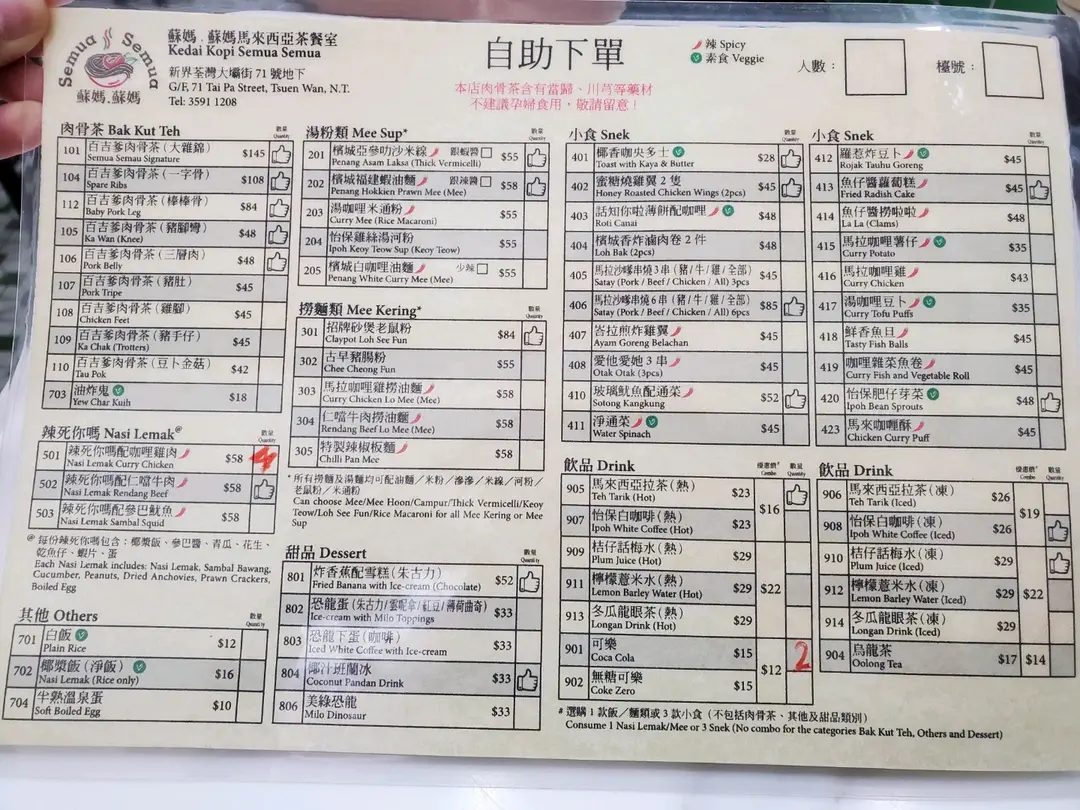 Semua Semua
蘇媽.蘇媽
蘇媽.蘇媽馬來西亞茶餐室
Kedai Kopi Semua Semua
新界荃灣大壩街 71 號地下
G/F, 71 Tai Pa Street, Tsuen Wan, N.T.
Tel: 3591 1208
自助下單
本店肉骨茶含有當歸、川芎等藥材
不建議孕婦食用，敬請留意！
辣 Spicy
素食 Veggie
人數：
檯號：
肉骨茶 Bak Kut Teh
數量 Quantity
101 百吉爹肉骨茶（大雜錦） $145
Semua Semau Signature
104 百吉爹肉骨茶（一字骨） $108
Spare Ribs
112 百吉爹肉骨茶（棒棒骨） $84
Baby Pork Leg
105 百吉爹肉骨茶（豬腳彎） $48
Ka Wan (Knee)
106 百吉爹肉骨茶（三層肉） $48
Pork Belly
107 百吉爹肉骨茶（豬肚） $45
Pork Tripe
108 百吉爹肉骨茶（雞腳） $45
Chicken Feet
109 百吉爹肉骨茶（豬手仔） $45
Ka Chak (Trotters)
110 百吉爹肉骨茶（豆卜金菇） $42
Tau Pok
703 油炸鬼 $18
Yew Char Kuih
辣死你嗎 Nasi Lemak@
數量 Quantity
501 辣死你嗎配咖喱雞肉 $58
Nasi Lemak Curry Chicken
502 辣死你嗎配仁當牛肉 $58
Nasi Lemak Rendang Beef
503 辣死你嗎配參巴魷魚 $58
Nasi Lemak Sambal Squid
@ 每份辣死你嗎包含：椰漿飯、參巴醬、青瓜、花生、
乾魚仔、蝦片、蛋
Each Nasi Lemak includes: Nasi Lemak, Sambal Bawang,
Cucumber, Peanuts, Dried Anchovies, Prawn Crackers,
Boiled Egg
其他 Others
數量 Quantity
701 白飯 $12
Plain Rice
702 椰漿飯（淨飯） $16
Nasi Lemak (Rice only)
704 半熟溫泉蛋 $10
Soft Boiled Egg
湯粉類 Mee Sup*
數量 Quantity
201 檳城亞參叻沙米線 跟蝦醬 $55
Penang Asam Laksa (Thick Vermicelli)
202 檳城福建蝦油麵 跟辣醬 $58
Penang Hokkien Prawn Mee (Mee)
203 湯咖哩米通粉 $55
Curry Mee (Rice Macaroni)
204 怡保雞絲湯河粉 $55
Ipoh Keoy Teow Sup (Keoy Teow)
205 檳城白咖哩油麵 少辣 $55
Penang White Curry Mee (Mee)
撈麵類 Mee Kering*
數量 Quantity
301 招牌砂煲老鼠粉 $84
Claypot Loh See Fun
302 古早豬腸粉 $55
Chee Cheong Fun
303 馬拉咖哩雞撈油麵 $58
Curry Chicken Lo Mee (Mee)
304 仁噹牛肉撈油麵 $58
Rendang Beef Lo Mee (Mee)
305 特製辣椒板麵 $58
Chilli Pan Mee
* 所有撈麵及湯麵均可配油麵／米粉／滲滲／米線／河粉／
老鼠粉／米通粉
Can choose Mee/Mee Hoon/Campur/Thick Vermicelli/Keoy
Teow/Loh See Fun/Rice Macaroni for all Mee Kering or Mee
Sup
甜品 Dessert
數量 Quantity
801 炸香蕉配雪糕（朱古力） $52
Fried Banana with Ice-cream (Chocolate)
802 恐龍蛋（朱古力/雲呢拿/紅豆/薄荷曲奇） $33
Ice-cream with Milo Toppings
803 恐龍下蛋（咖啡） $33
Iced White Coffee with Ice-cream
804 椰汁班蘭冰 $33
Coconut Pandan Drink
806 美綠恐龍 $33
Milo Dinosaur
小食 Snek
數量 Quantity
401 椰香咖央多士 $28
Toast with Kaya & Butter
402 蜜糖燒雞翼 2 隻 $45
Honey Roasted Chicken Wings (2pcs)
403 話知你啦薄餅配咖哩 $48
Roti Canai
404 檳城香炸滷肉卷 2 件 $48
Loh Bak (2pcs)
405 馬拉沙嗲串燒 3 串（豬/牛/雞/全部） $45
Satay (Pork / Beef / Chicken / All) 3pcs
406 馬拉沙嗲串燒 6 串（豬/牛/雞/全部） $85
Satay (Pork / Beef / Chicken / All) 6pcs
407 峇拉煎炸雞翼 $45
Ayam Goreng Belachan
408 愛他愛她 3 串 $45
Otak Otak (3pcs)
410 玻璃魷魚配通菜 $52
Sotong Kangkung
411 淨通菜 $45
Water Spinach
小食 Snek
數量 Quantity
412 羅惹炸豆卜 $45
Rojak Tauhu Goreng
413 魚仔醬蘿蔔糕 $45
Fried Radish Cake
414 魚仔醬捞啦啦 $48
La La (Clams)
415 馬拉咖哩薯仔 $35
Curry Potato
416 馬拉咖哩雞 $43
Curry Chicken
417 湯咖哩豆卜 $35
Curry Tofu Puffs
418 鮮香魚旦 $45
Tasty Fish Balls
419 咖哩雜菜魚卷 $45
Curry Fish and Vegetable Roll
420 怡保肥仔芽菜 $48
Ipoh Bean Sprouts
423 馬來咖喱酥 $45
Chicken Curry Puff
飲品 Drink
優惠價# Combo
數量 Quantity
905 馬來西亞拉茶（熱） $23
Teh Tarik (Hot)
$16
907 怡保白咖啡（熱） $23
Ipoh White Coffee (Hot)
909 桔仔話梅水（熱） $29
Plum Juice (Hot)
911 檸檬薏米水（熱） $29 $22
Lemon Barley Water (Hot)
913 冬瓜龍眼茶（熱） $29
Longan Drink (Hot)
901 可樂 $15 2
Coca Cola
$12
902 無糖可樂 $15
Coke Zero
飲品 Drink
優惠價# Combo
數量 Quantity
906 馬來西亞拉茶（凍） $26
Teh Tarik (Iced)
$19
908 怡保白咖啡（凍） $26
Ipoh White Coffee (Iced)
910 桔仔話梅水（凍） $29
Plum Juice (Iced)
912 檸檬薏米水（凍） $29 $22
Lemon Barley Water (Iced)
914 冬瓜龍眼茶（凍） $29
Longan Drink (Iced)
904 烏龍茶 $17 $14
Oolong Tea
# 選購 1 款飯／麵類或 3 款小食（不包括肉骨茶、其他及甜品類別）
Consume 1 Nasi Lemak/Mee or 3 Snek (No combo for the categories Bak Kut Teh, Others and Dessert)